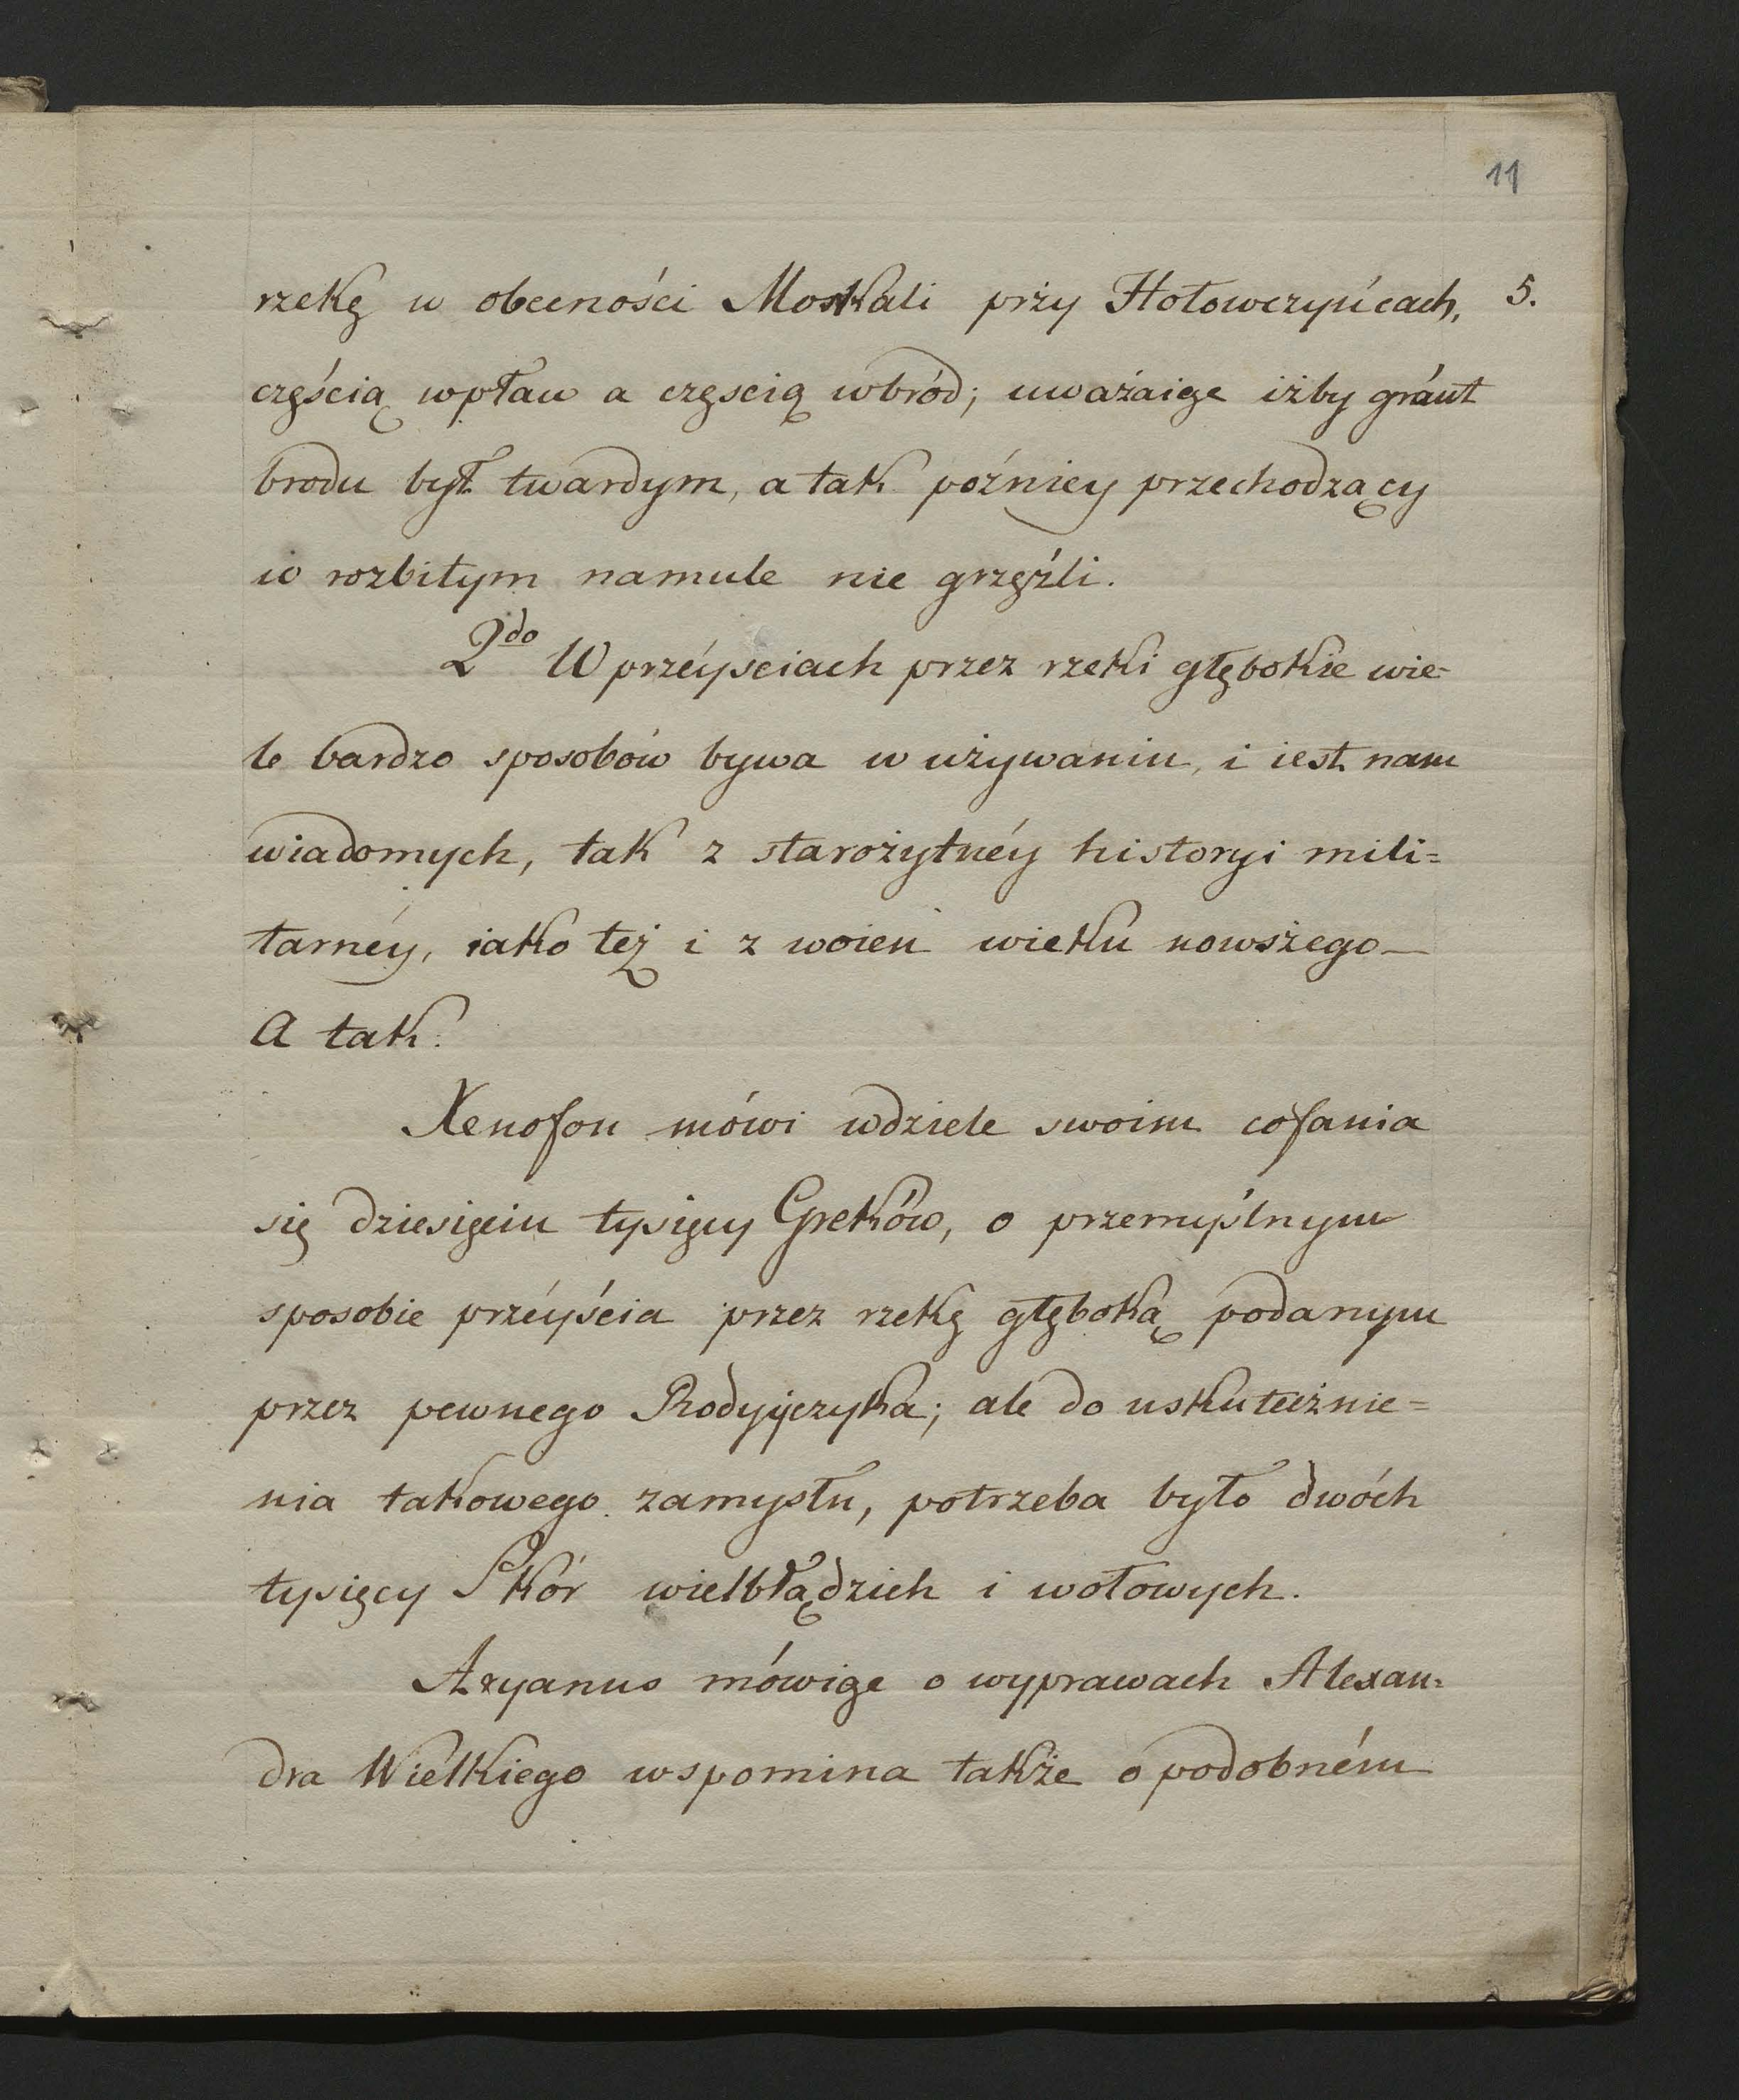 11
rzekę w obecności Moskali przy Hołowczyńcach, 5.
częścią wpław a częscią wbród; uważaiąc iżby grunt
brodu był twardym, a tak poźniey przechodzący
w rozbitym namule nie grzęźli.
2do W przéyściach przez rzeki głębokie wie-
le bardzo sposobów bywa w używaniu, i iest nam
wiadomych, tak z starożytnéy historyi mili=
tarnéy, iako też i z woien wieku nowszego—
A tak.
Xenofon mówi wdziele swoim cofania
się dziesięciu tysięcy Greków, o przemyślnym
sposobie przéyścia przez rzekę głęboką podanym
przez pewnego Rodyyczyka; ale do uskutecznie=
nia takowego zamysłu, potrzeba było dwóch
tysięcy Skór wielbłądzich i wołowych.
Aryanus mówiąc o wyprawach Alexan=
dra Wielkiego wspomina także o podobném